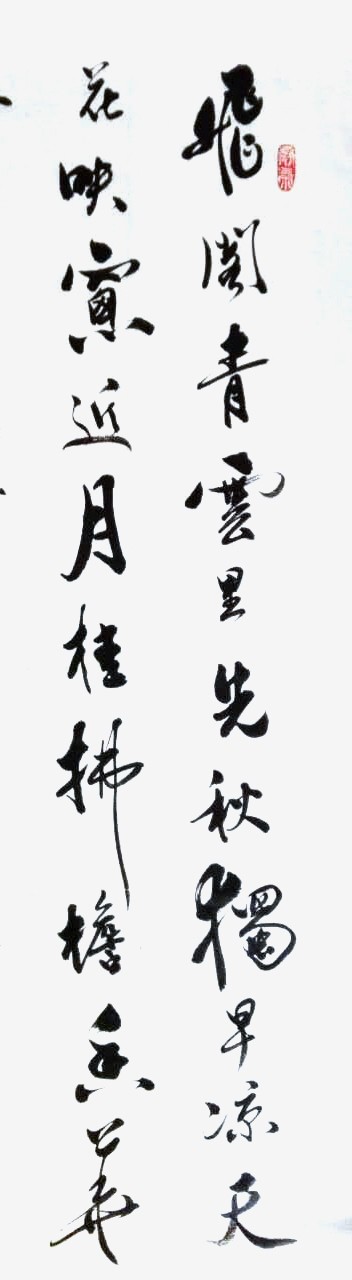 飛閣青雲里先秋獨早凉天
花映窗近月桂拂檐香華